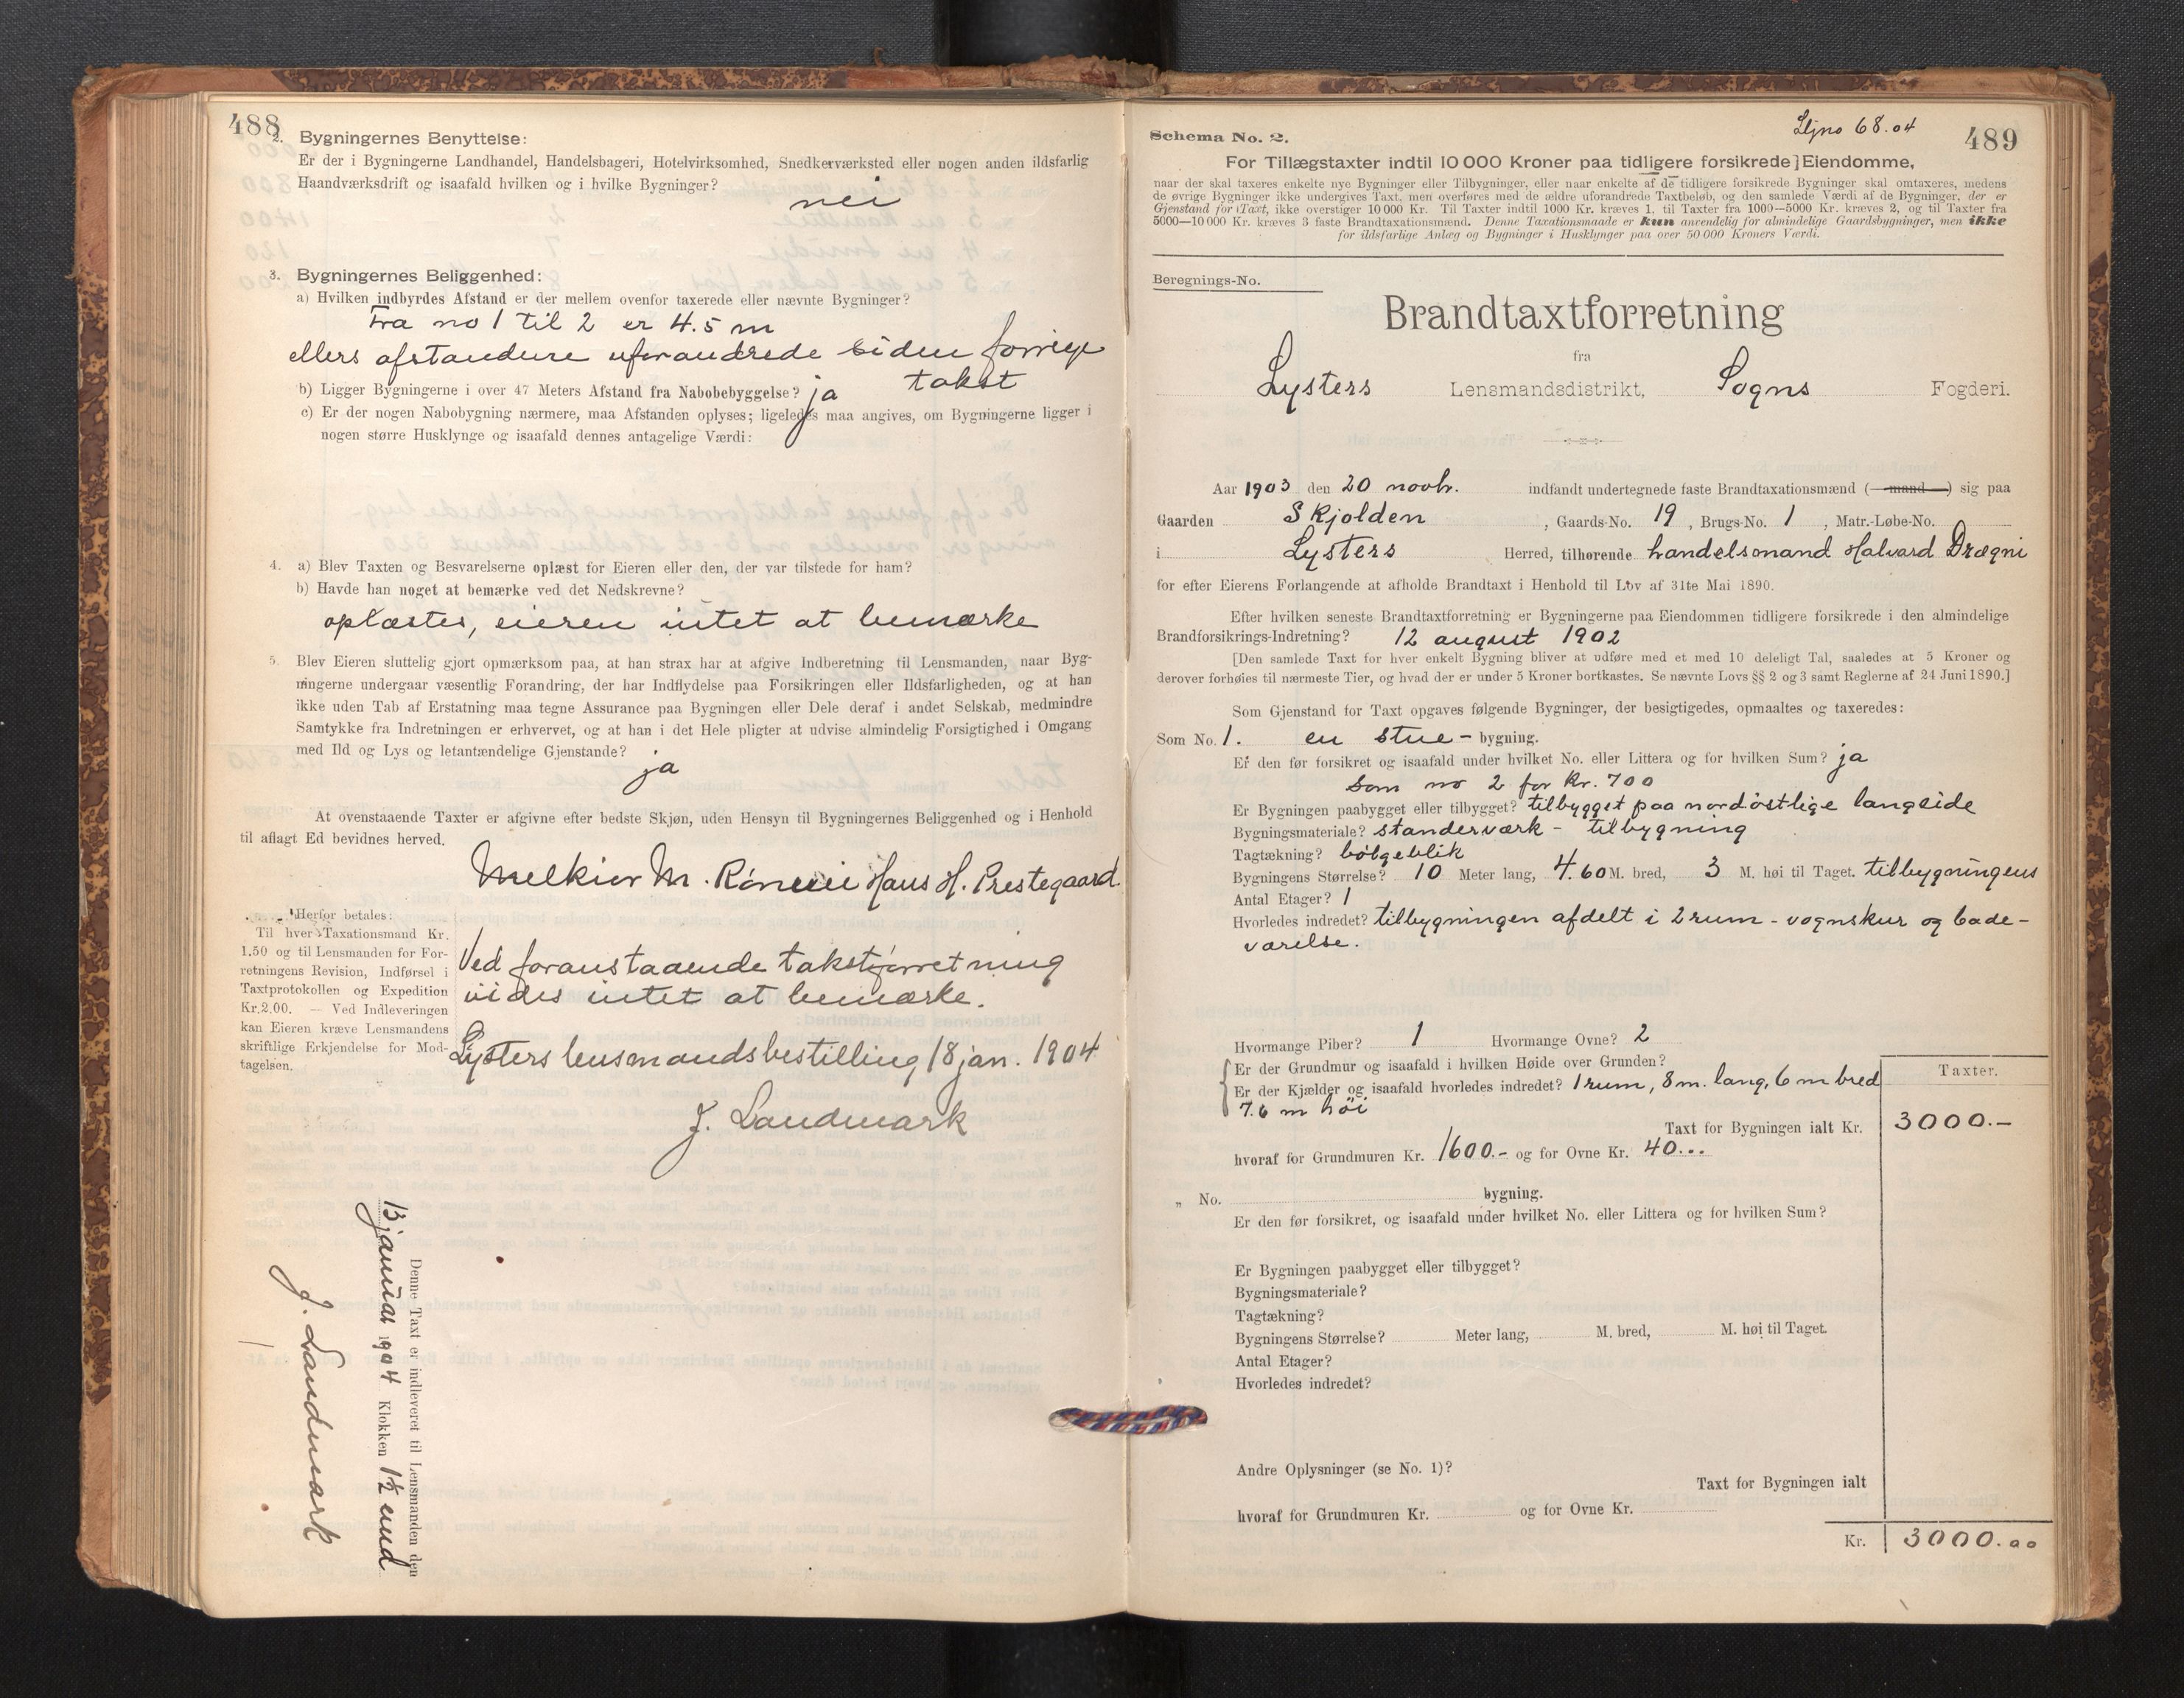 488
2. Bygningernes Benyttelse:
Er der i Bygningerne Landhandel, Handelsbageri, Hotelvirksomhed, Snedkerværksted eller nogen anden ildsfarlig
Haandværksdrift og isaafald hvilken og i hvilke Bygninger?
nei
3. Bygningernes Beliggenhed:
a) Hvilken indbyrdes Afstand er der mellem ovenfor taxerede eller nævnte Bygninger?
Fra no 1 til 2 er 4.5 m
ellers afstandene uforandrede siden forrige
takst
b) Ligger Bygningerne i over 47 Meters Afstand fra Nabobebyggelse? ja
c) Er der nogen Nabobygning nærmere, maa Afstanden oplyses; ligeledes maa angives, om Bygningerne ligger i
nogen større Husklynge og isaafald dennes antagelige Værdi:
4. a) Blev Taxten og Besvarelserne oplæst for Eieren eller den, der var tilstede for ham?
b) Havde han noget at bemærke ved det Nedskrevne?
oplæstes, eieren intet at bemærke
5. Blev Eieren sluttelig gjort opmærksom paa, at han strax har at afgive Indberetning til Lensmanden, naar Byg-
ningerne undergaar væsentlig Forandring, der har Indflydelse paa Forsikringen eller Ildsfarligheden, og at han
ikke uden Tab af Erstatning maa tegne Assurance paa Bygningen eller Dele deraf i andet Selskab, medmindre
Samtykke fra Indretningen er erhvervet, og at han i det Hele pligter at udvise almindelig Forsigtighed i Omgang
med Ild og Lys og letantændelige Gjenstande?
ja
At ovenstaaende Taxter er afgivne efter bedste Skjøn, uden Hensyn til Bygningernes Beliggenhed og i Henhold
til aflagt Ed bevidnes herved.
Melkior M. Rønnei Hans H. Prestegaard.
Herfor betales:
Til hver Taxationsmand Kr.
1.50 og til Lensmanden for For-
retningens Revision, Indførsel i
Taxtprotokollen og Expedition
Kr. 2.00. — Ved Indleveringen
kan Eieren kræve Lensmandens
skriftlige Erkjendelse for Mod-
tagelsen.
Ved foranstaaende takstforretning
vides intet at bemærke.
Lysters lensmandsbestilling 18 jan. 1904
J. Landmark
Denne Taxt er indleveret til Lensmanden den
13 januar 1904 Klokken 1½ emd
J. Landmark
Ljno 68.04
489
Schema No. 2.
For Tillægstaxter indtil 10 000 Kroner paa tidligere forsikrede Eiendomme,
naar der skal taxeres enkelte nye Bygninger eller Tilbygninger, eller naar enkelte af de tidligere forsikrede Bygninger skal omtaxeres, medens
de øvrige Bygninger ikke undergives Taxt, men overføres med de ældre uforandrede Taxtbeløb, og den samlede Værdi af de Bygninger, der er
Gjenstand for Taxt, ikke overstiger 10 000 Kr. Til Taxter indtil 1000 Kr. kræves 1, til Taxter fra 1000—5000 Kr. kræves 2, og til Taxter fra
5000—10 000 Kr. kræves 3 faste Brandtaxationsmænd. Denne Taxationsmaade er kun anvendelig for almindelige Gaardsbygninger, men ikke
for ildsfarlige Anlæg og Bygninger i Husklynger paa over 50 000 Kroners Værdi.
Beregnings-No.
Brandtaxtforretning
fra
Lysters Lensmandsdistrikt, Sogns Fogderi.
Aar 1903 den 20 novbr. indfandt undertegnede faste Brandtaxationsmænd (mand) sig paa
Gaarden Skjolden, Gaards-No. 19, Brugs-No. 1, Matr.-Løbe-No.
i Lysters Herred, tilhørende handelsmand Halvard Drægni
for efter Eierens Forlangende at afholde Brandtaxt i Henhold til Lov af 31te Mai 1890.
Efter hvilken seneste Brandtaxtforretning er Bygningerne paa Eiendommen tidligere forsikrede i den almindelige
Brandforsikrings-Indretning? 12 august 1902
[Den samlede Taxt for hver enkelt Bygning bliver at udføre med et med 10 deleligt Tal, saaledes at 5 Kroner og
derover forhøies til nærmeste Tier, og hvad der er under 5 Kroner bortkastes. Se nævnte Lovs §§ 2 og 3 samt Reglerne af 24 Juni 1890.]
Som Gjenstand for Taxt opgaves følgende Bygninger, der besigtigedes, opmaaltes og taxeredes:
Som No. 1. en stue - bygning.
Er den før forsikret og isaafald under hvilket No. eller Littera og for hvilken Sum? ja
som no 2 for kr. 700
Er Bygningen paabygget eller tilbygget? tilbygget paa nordöstlige langside
Bygningsmateriale? standerværk - tilbygning
Tagtækning? bölgeblik
Bygningens Størrelse? 10 Meter lang, 4.60 M. bred, 3 M. høi til Taget. tilbygningens
Antal Etager? 1
Hvorledes indredet? tilbygningen afdelt i 2 rum - vognskur og bade-
værelse.
Hvormange Piber? 1 Hvormange Ovne? 2
Er der Grundmur og isaafald i hvilken Høide over Grunden?
Er der Kjælder og isaafald hvorledes indredet? 1 rum, 8 m. lang, 6 m bred
7.6 m höi
Taxter.
Taxt for Bygningen ialt Kr. 3000.-
hvoraf for Grundmuren Kr. 1600.- og for Ovne Kr. 40...
„ No. bygning.
Er den før forsikret, og isaafald under hvilket No. eller Littera og for hvilken Sum?
Er Bygningen paabygget eller tilbygget?
Bygningsmateriale?
Tagtækning?
Bygningens Størrelse? Meter lang, M. bred, M. høi til Taget.
Antal Etager?
Hvorledes indredet?
Andre Oplysninger (se No. 1)?
Taxt for Bygningen ialt
hvoraf for Grundmuren Kr. og for Ovne Kr.
Kr. 3000.00